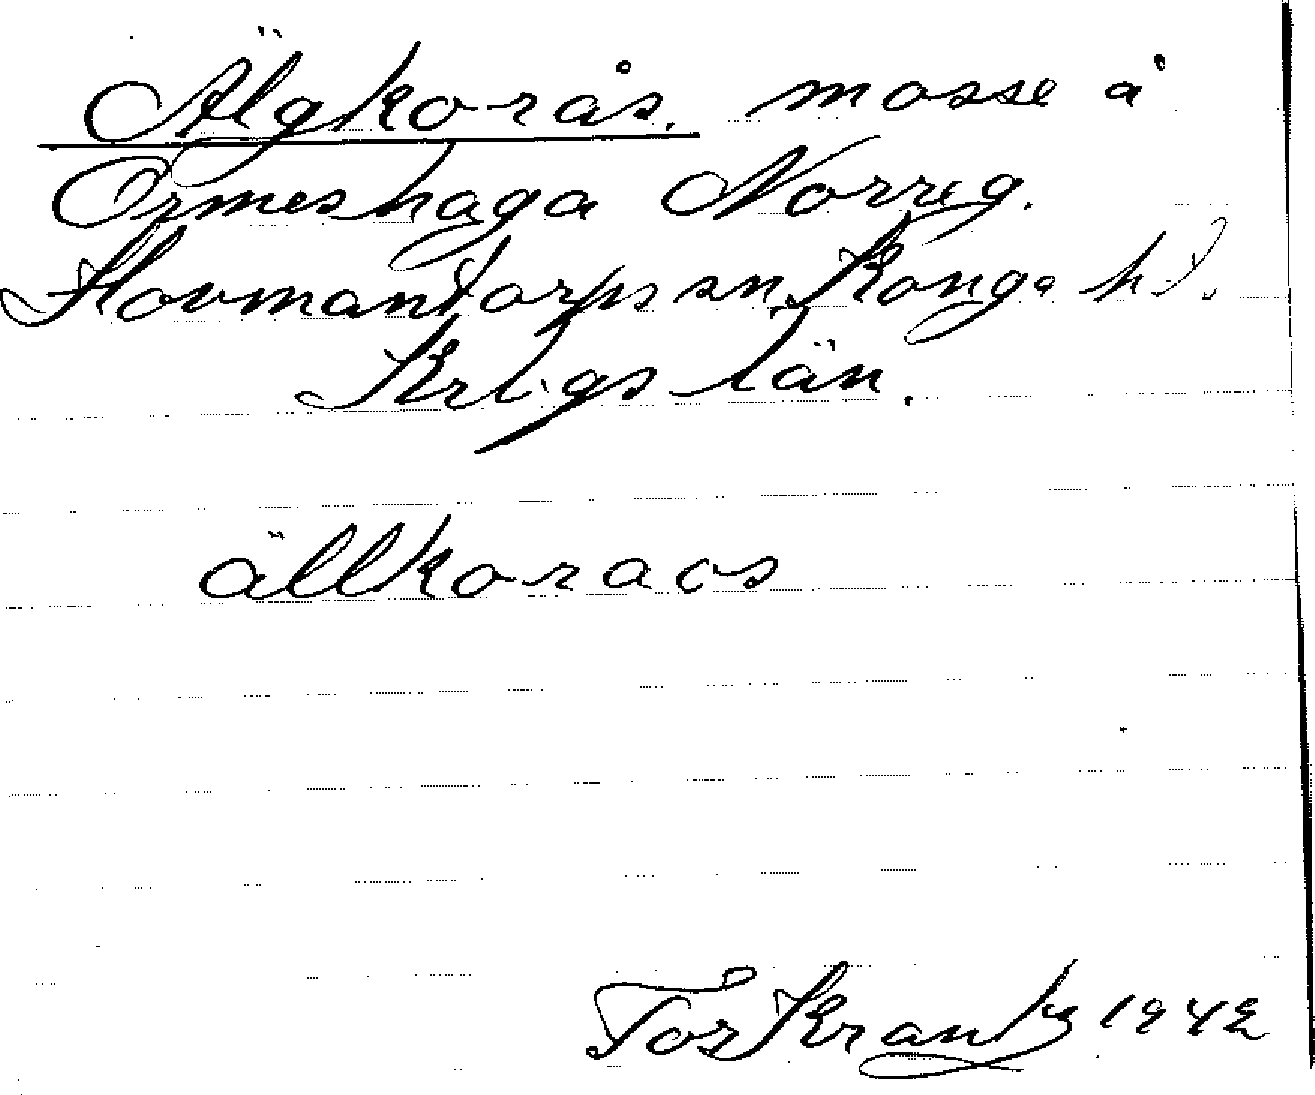 Älgkorås. mosse å
Ormeshaga Norreg.
Hovmantorps sn, Konga hd.
Krbgs län.
ällkoraos
Tor Krantz 1942